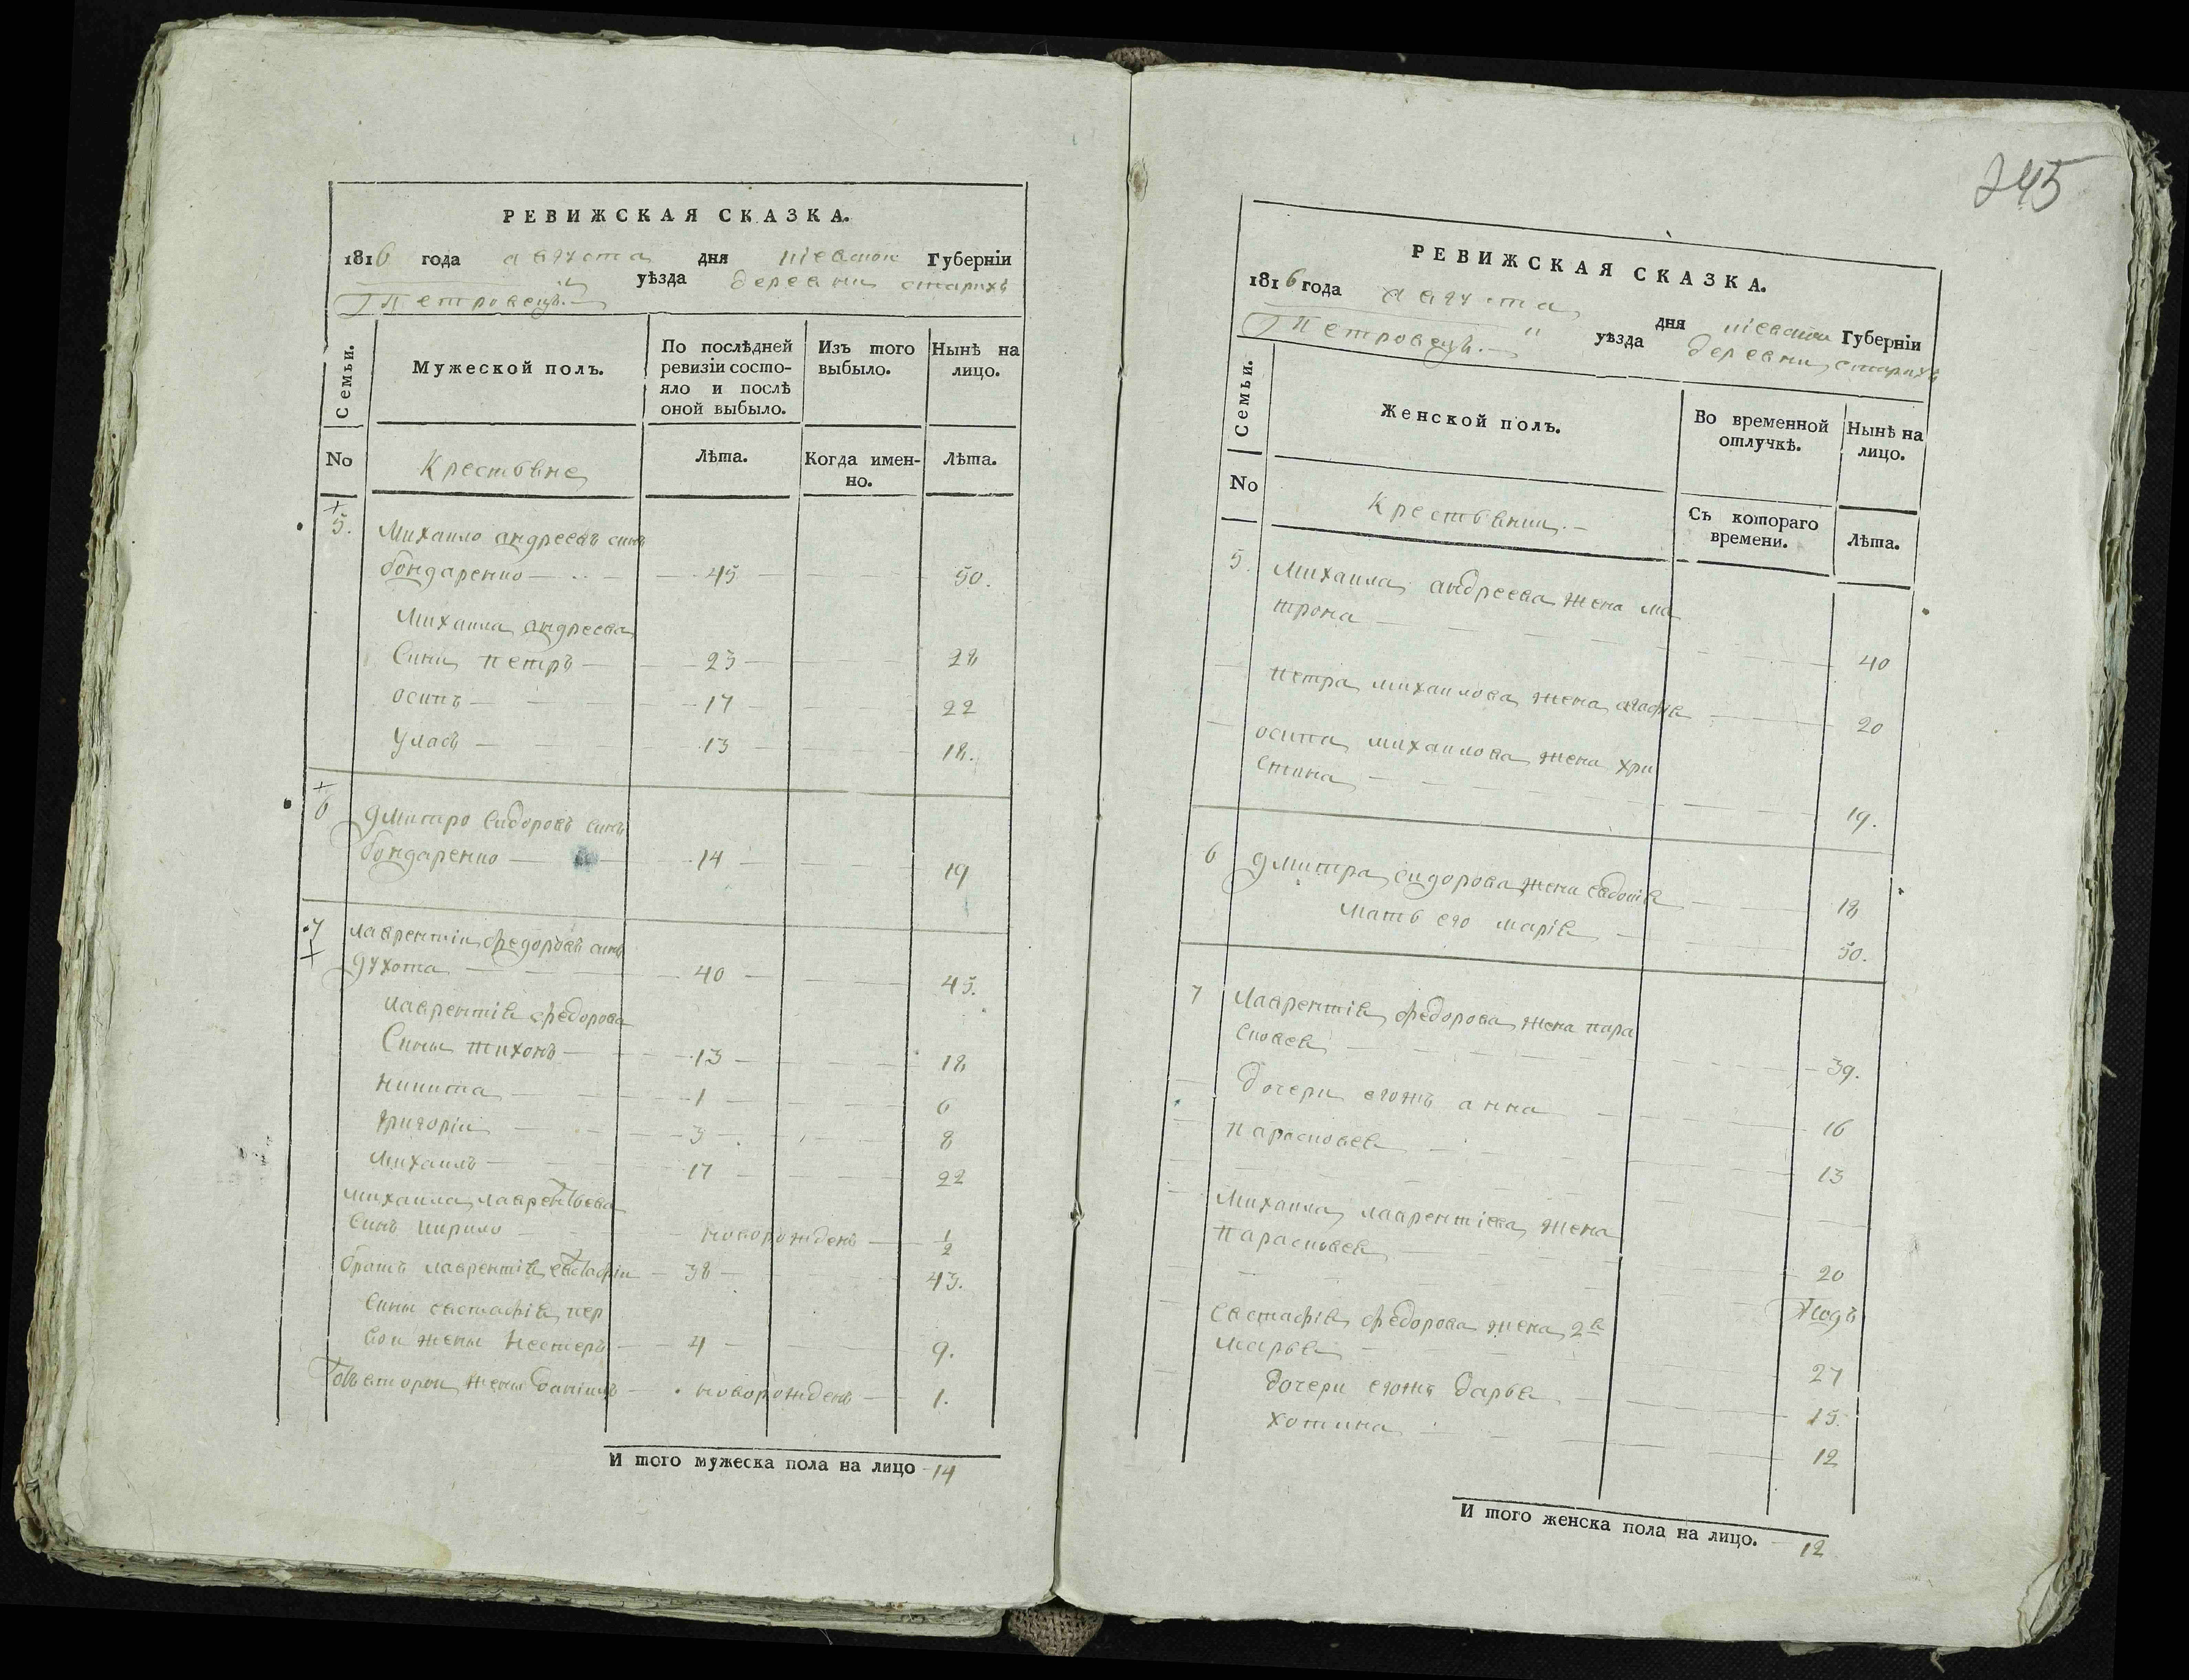 РЕВИЖСКАЯ СКАЗКА.
1816 года августа дня Кіевской Губерніи
уѣзда деревни старихъ
Петровецъ.
Семьи.
Мужеской полъ.
По послѣдней ревизіи состо-
яло и послѣ оной выбыло.
Изъ того выбыло.
Нынѣ на лицо.
No
Крестьяне
Лѣта.
Когда имен-
но.
Лѣта.
5. Михаило андреевъ синъ
бондаренко — 45 — 50.
Михаила андреева
Сини петръ — 23 — 28
осипъ — 17 — 22
Уласъ — 13 — 18.
6 Дмитро Сидоровъ синъ
бондаренко — 14 — 19
7 лаврентіи федоровъ синъ
духота — 40 — 45.
лаврентія федорова
Сини тихонъ — 13 — 18
Никита — 1 — 6
Григоріи — 3 — 8
Михаилъ — 17 — 22
Михаила лаврентьева
Синъ кирило — новорожденъ — 1/2
братъ лаврентія евстафіи — 38 — 43.
Сини евстафія пер
вои жены Нестеръ — 4 — 9.
второи жены даніилъ — новорожденъ — 1.
И того мужеска пола на лицо 14
245
РЕВИЖСКАЯ СКАЗКА.
1816 года августа дня Кіевской Губерніи
уѣзда деревни старихъ
Петровецъ.
Семьи.
Женской полъ.
Во временной отлучкѣ.
Нынѣ на лицо.
No
Крестьянки.
Съ котораго времени.
Лѣта.
5. Михаила андреева жена ма
трона — 40
петра михаилова жена агафія — 20
осипа михаилова жена хри
стина — 19.
6 Дмитра сидорова жена евдокія — 18
Мать его марія — 50.
7 Лаврентія федорова жена пара
сковея — 39.
дочери егожъ анна — 16
парасковея — 13
Михаила лаврентіева жена
парасковея — 20
годъ
Евстафія федорова жена 2я
марья — 27
дочери егожъ дарья — 15.
хотина — 12
И того женска пола на лицо. 12